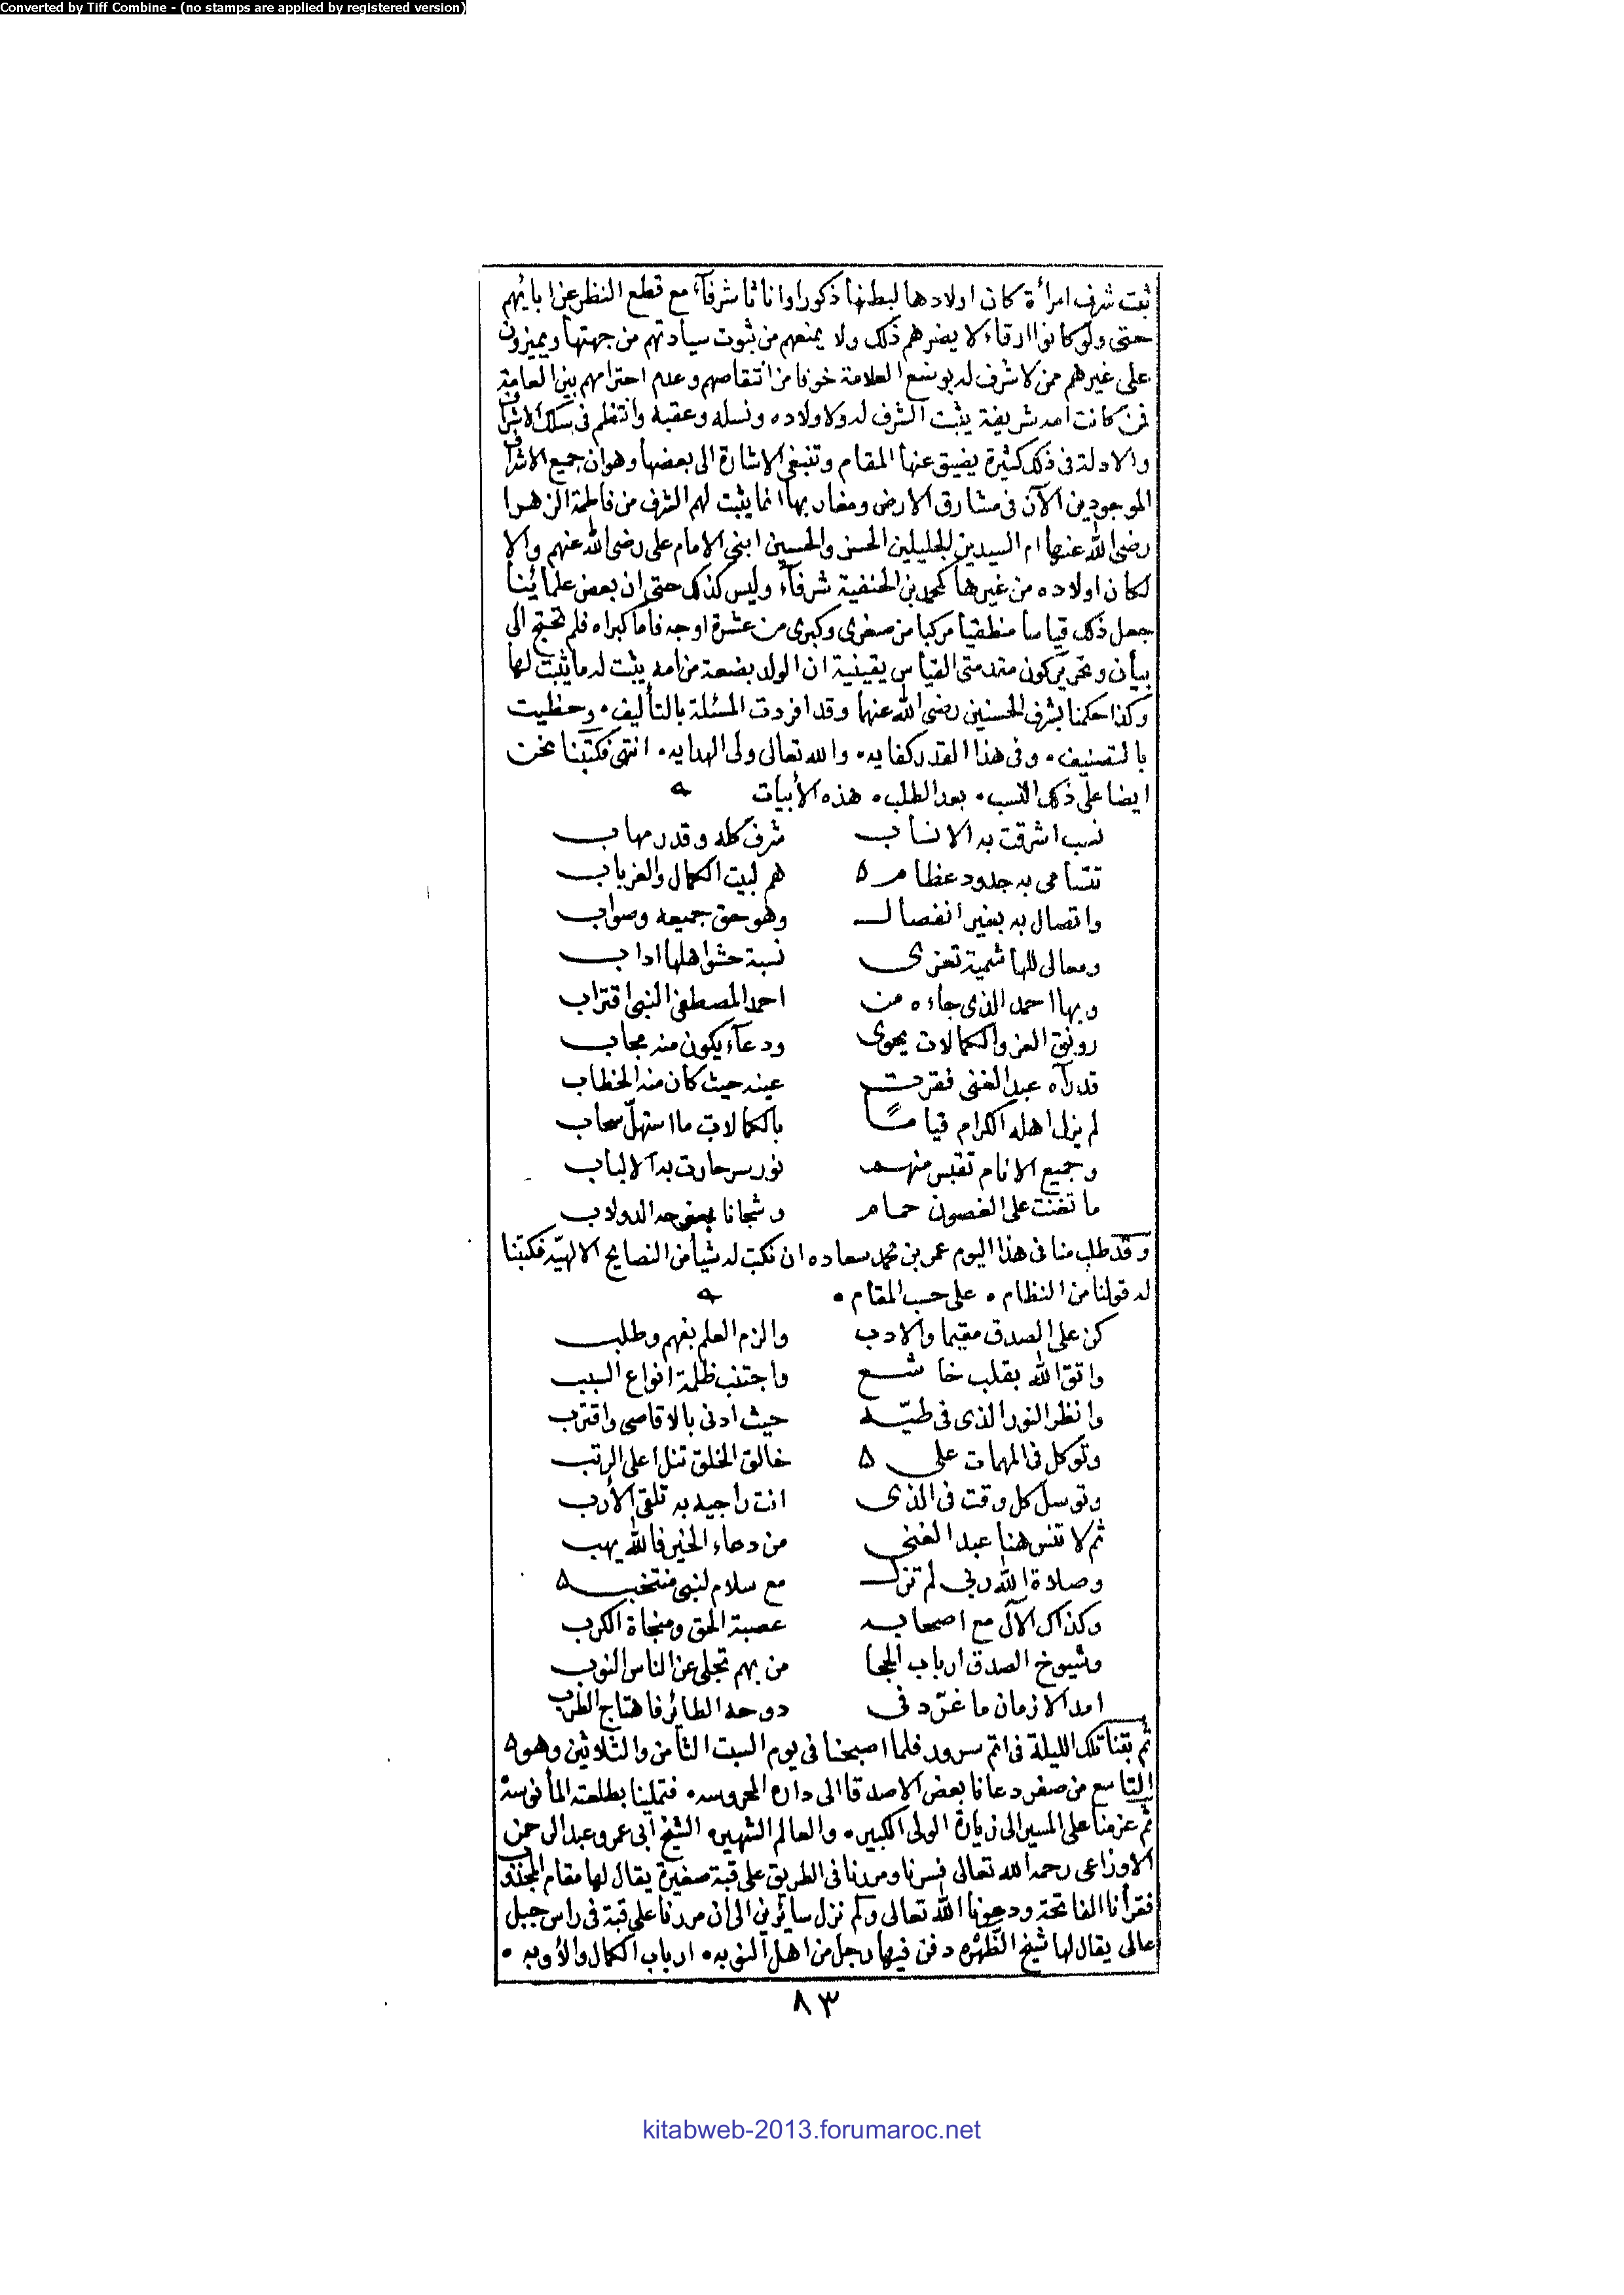 Converted by Tiff Combine - (no stamps are applied by registered version)
ثبت شرف امرأة كان اولادها لبطنها ذكورا واناثا شرفآء مع قطع النظر عن ابايهم
حتى ولو كانوا ارقاء لا يضرهم ذلك ولا يمنعهم من ثبوت سيادتهم من جهتها ويميزون
على غيرهم ممن لا شرف له بوضع العلامة خوفا من انتقاصهم وعدم احترامهم بين العامة
فمن كانت امه شريفة يثبت الشرف له ولاولاده ونسله وعقبه وانتظم فى سلك الاشراف
والادلة فى ذلك كثيرة يضيق عنها المقام وتنبغى الاشارة الى بعضها وهو ان جميع الاشراف
الموجودين الآن فى مشارق الارض ومغاربها انما يثبت لهم الشرف من فاطمة الزهرا
رضى الله عنها ام السيدين الجليلين الحسن والحسين ابنى الامام على رضى الله عنهم والا
لكان اولاده من غيرها كمحمد بن الحنفية شرفآء وليس كذلك حتى ان بعض علمائنا
جعل ذلك قياسا منطقيا مركبا من صغرى وكبرى من عشرة اوجه فاما كبراه فلم تحتج الى
بيان وتحرير كون مقدمتى القياس يقينية ان الولد بضعة من امه يثبت له ما يثبت لها
وكذا حكمنا بشرف الحسنين رضى الله عنهما وقد افردت المسئلة بالتأليف ٠ وحظيت
بالتصنيف ٠ وفى هذا القدر كفايه ٠ والله تعالى ولى الهدايه ٠ انتهى فكتبنا نحن
ايضا على ذلك النسب ٠ بعد الطلب ٠ هذه الأبيات
نسب اشرقت به الانساب شرف كله وقدر مهاب
تتسامى به جدود عظام هم لبيت الكمال والعز باب
واتصال به بغير انفصال وهو حق جميعه وصواب
ومعالى للهاشمية تعزى نسبة حشو اهلها اداب
وبها احمد الذى جاءه من احمد المصطفى النبى اقتراب
رونق العز والكمالات يحوى ودعآء يكون منه مجاب
قد رآه عبد الغنى فقرت عينه حيث كان منه الخطاب
لم يزل اهله الكرام قياما بالكمالات ما استهلّ سحاب
وجميع الانام تقبس منهم نور سر حارت به الالباب
ما تغنت على الغصون حمام وشجانا الدولاب
وقد طلب منا فى هذا اليوم عمر بن محمد سعاده ان نكتب له شيأ من النصايح الالهيّه فكتبنا
له قولنا من النظام ٠ على حسب المقام ٠
كن على الصدق مقيما والادب والزم العلم بفهم وطلب
واتق الله بقلب خاشع واجتنب ظلمة انواع السبب
وانظر النور الذى فى طيّه حيث ادنى بالاقاصى واقترب
وتوكل فى المهمات على خالق الخلق تنل اعلى الرتب
وتوسل كل وقت فى الذى انت راجيه به تلقى الأرب
ثم لا تنس هنا عبد الغنى من دعاء الخير فالله يهب
وصلاة الله ربى لم تزل مع سلام لنبى منتخب
وكذاك الآل مع اصحابه عصبة الحق ومنجاة الكرب
وشيوخ الصدق ارباب الحجا من بهم تجلى عن الناس النوب
امد الازمان ما غرّد فى دوحه الطائر فاهتاج الطرب
ثم بتنا تلك الليلة فى اتم سرور فلما اصبحنا فى يوم السبت الثامن والثلاثين وهو
التاسع من صفر دعانا بعض الاصدقا الى داره المحروسه ٠ فتملينا بطلعته المأنوسة
ثم عزمنا على المسير الى زيارة الولى الكبير ٠ والعالم الشهير ٠ الشيخ أبى عمرو عبد الرحمن
الاوزاعى رحمه الله تعالى فسرنا ومررنا فى الطريق على قبة صغيرة يقال لها مقام المجذوب
فقرأنا الفاتحة ودعونا الله تعالى ولم نزل سائرين الى ان مررنا على قبة فى راس جبل
عالى يقال لها شيخ الظهره دفن فيها رجل من اهل النوبه ٠ ارباب الكمال والأوبه ٠
٨٣
kitabweb-2013.forumaroc.net